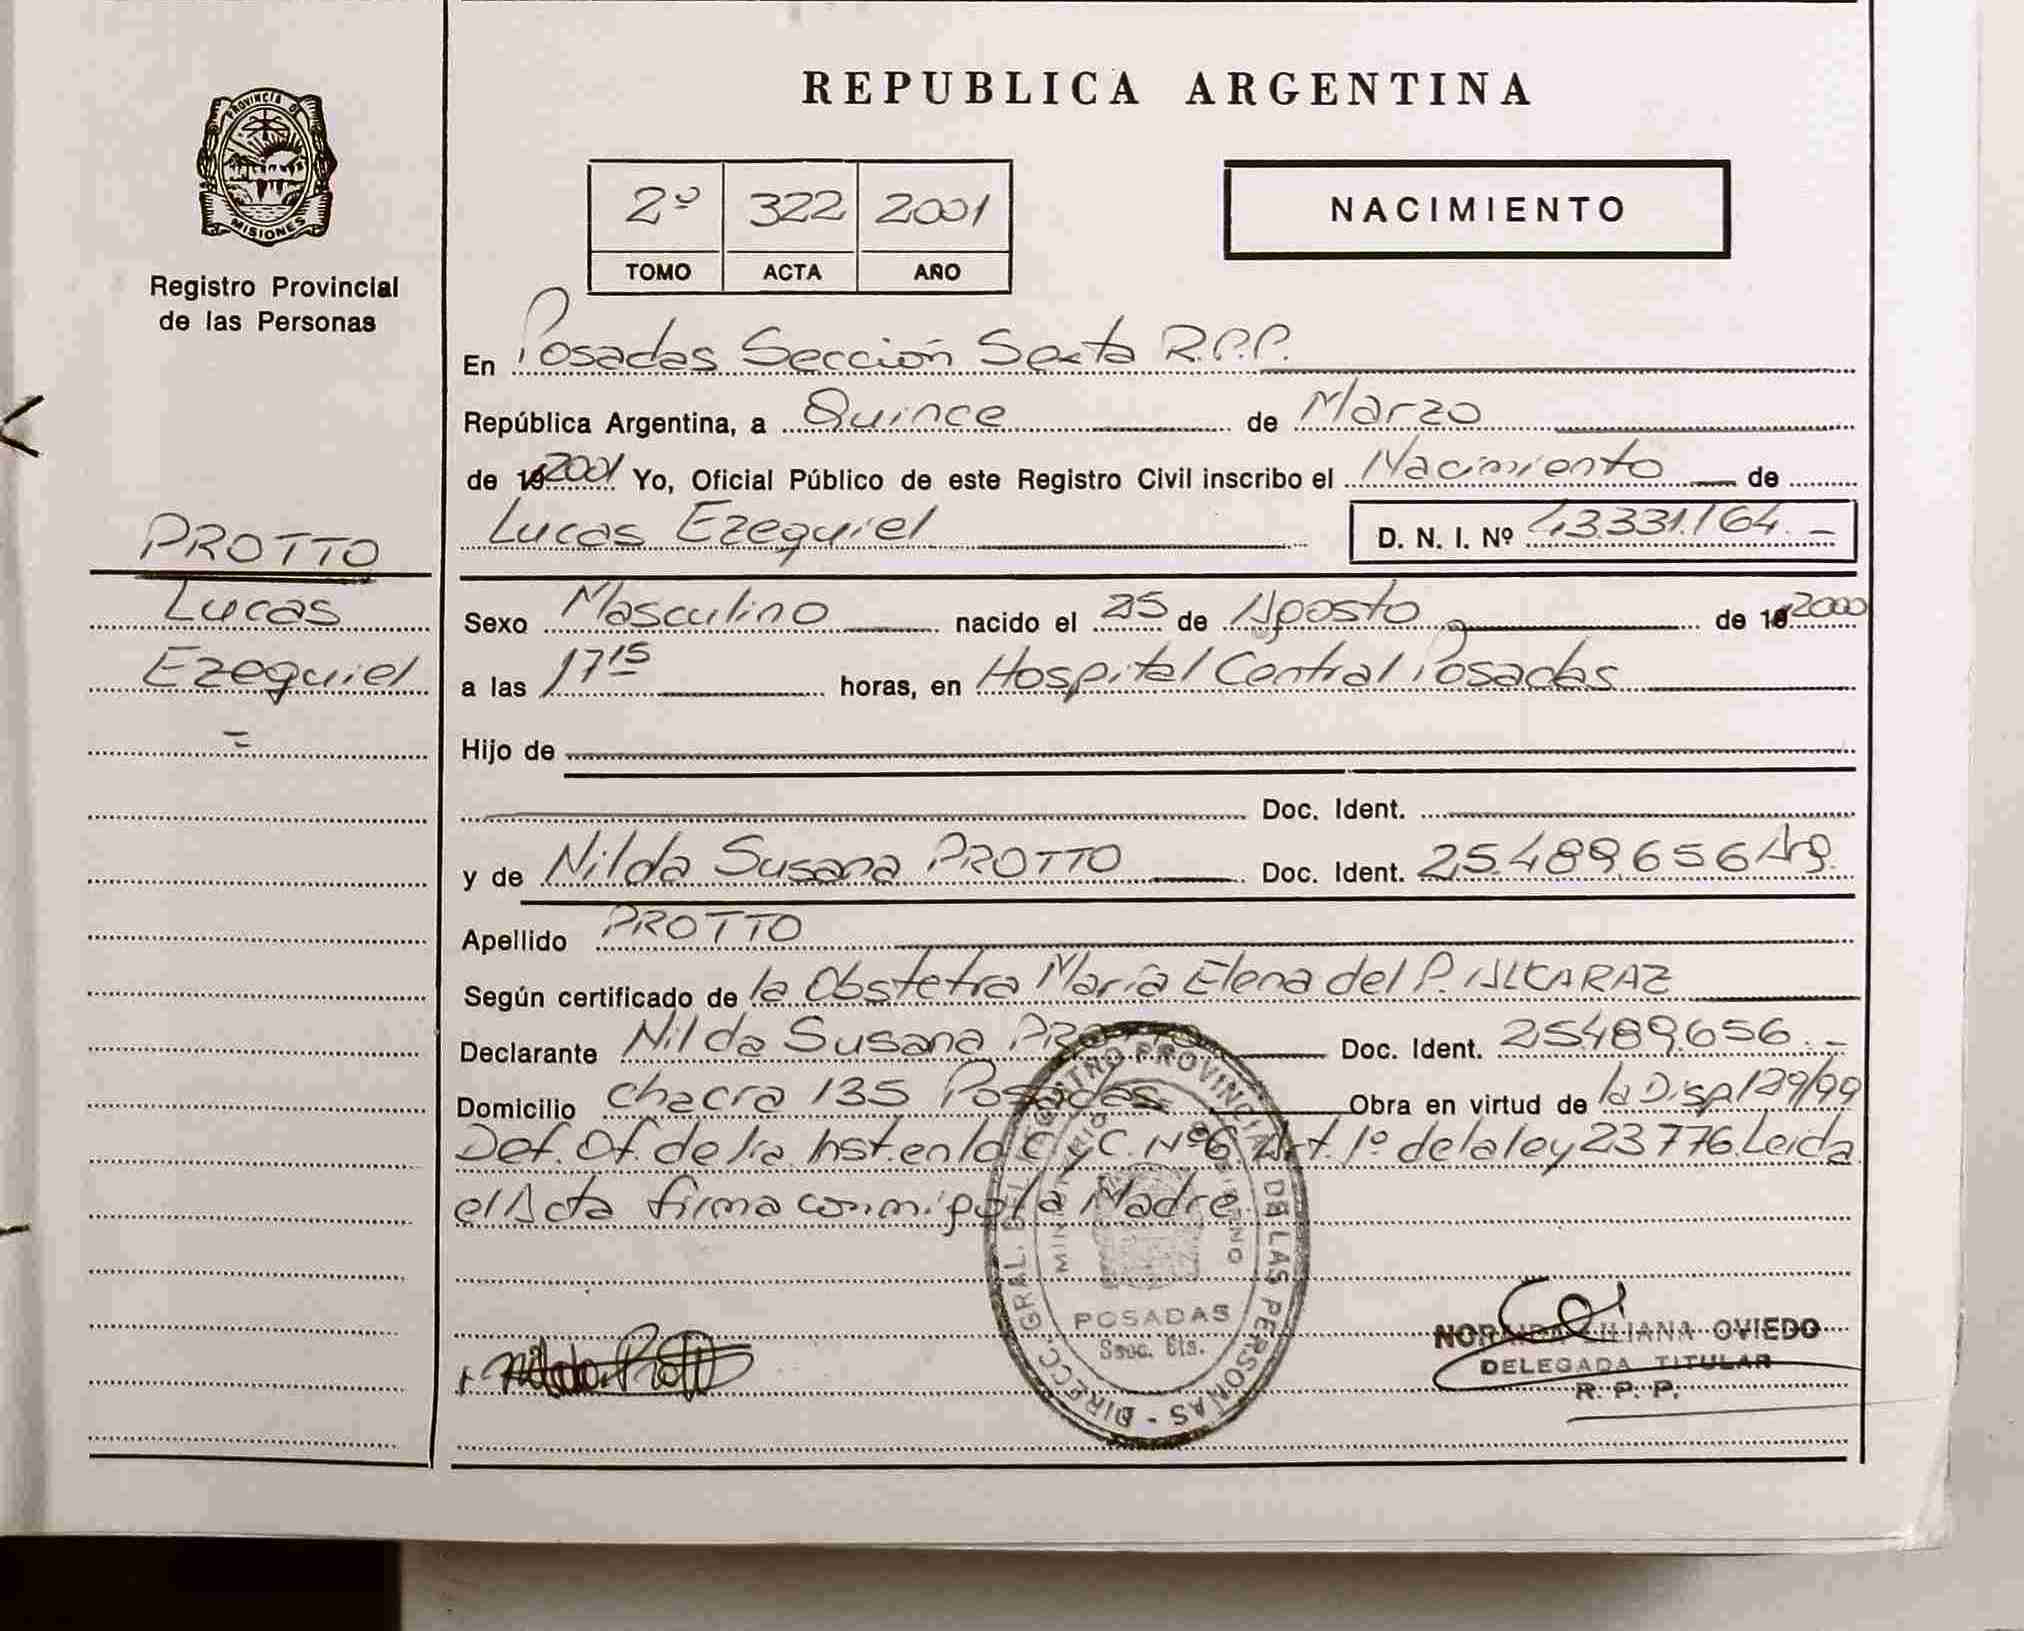 REPUBLICA ARGENTINA
PROVINCIA DE
MISIONES
Registro Provincial
de las Personas
2º 322 2001
TOMO ACTA AÑO
NACIMIENTO
En Posadas Sección Sexta R.P.P.
República Argentina, a Quince de Marzo
de 192001 Yo, Oficial Público de este Registro Civil inscribo el Nacimiento de
Lucas Ezequiel D. N. I. Nº 43.331.164.-
PROTTO
Lucas
Ezequiel
Sexo Masculino nacido el 25 de Agosto de 192000
a las 17 15 horas, en Hospital Central Posadas
Hijo de
Doc. Ident.
y de Nilda Susana PROTTO Doc. Ident. 25.489.656 Arg.
Apellido PROTTO
Según certificado de la Obstetra María Elena del P. ALCARAZ
Declarante Nilda Susana PROTTO Doc. Ident. 25.489.656.-
Domicilio Chacra 135 Posadas Obra en virtud de la Disp 129/99
Def. Of. de 1ra Inst. en lo C y C. Nº 6. Art. 1º de la ley 23776. Leida
el Acta firma conmigo la Madre
DIRECC. GRAL. DEL REGISTRO PROVINCIAL DE LAS PERSONAS
MINISTERIO DE GOBIERNO
POSADAS
Nilda Protto
LILIANA OVIEDO
DELEGADA TITULAR
R. P. P.